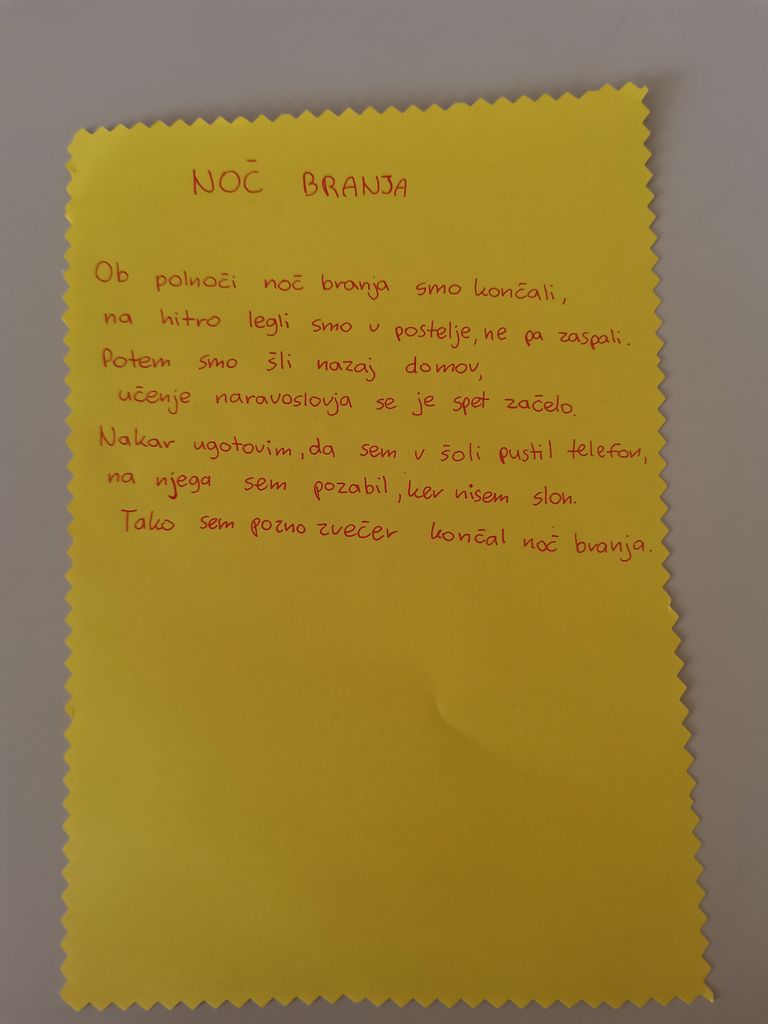 NOČ BRANJA
Ob polnoči noč branja smo končali,
na hitro legli smo v postelje, ne pa zaspali.
Potem smo šli nazaj domov,
učenje naravoslovja se je spet začelo.
Nakar ugotovim, da sem v šoli pustil telefon,
na njega sem pozabil, ker nisem slon.
Tako sem pozno zvečer končal noč branja.